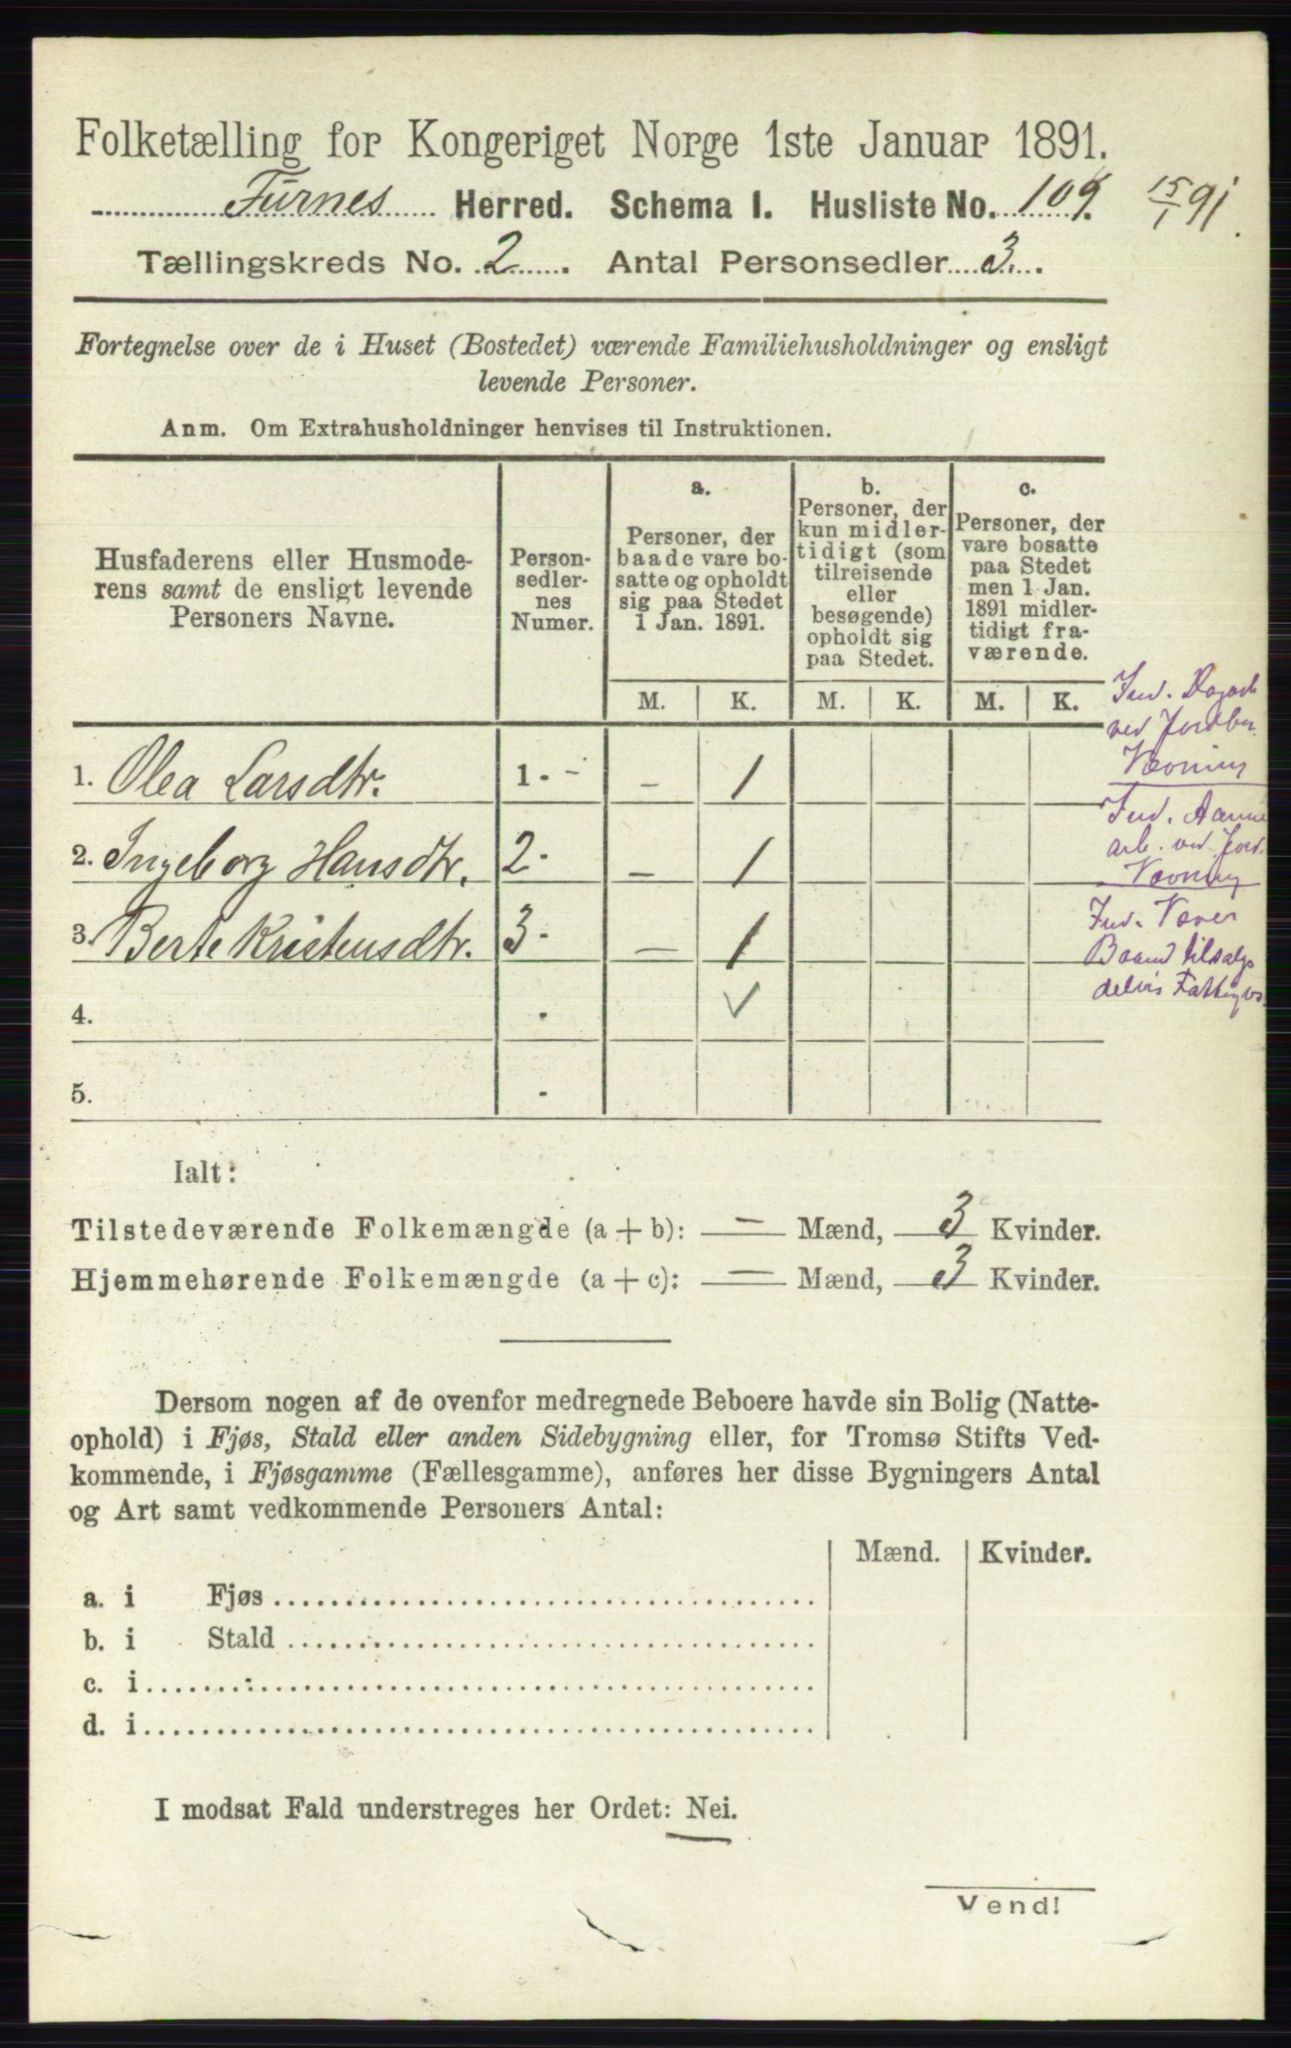 Folketælling for Kongeriget Norge 1ste Januar 1891.
Furnes Herred. Schema I. Husliste No. 109.
15/1 91.
Tællingskreds No. 2. Antal Personsedler 3.
Fortegnelse over de i Huset (Bostedet) værende Familiehusholdninger og ensligt
levende Personer.
Anm. Om Extrahusholdninger henvises til Instruktionen.
Husfaderens eller Husmode-
rens samt de ensligt levende
Personers Navne.
Person-
sedler-
nes
Numer.
a.
Personer, der
baade vare bo-
satte og opholdt
sig paa Stedet
1 Jan. 1891.
b.
Personer, der
kun midler-
tidigt (som
tilreisende
eller
besøgende)
opholdt sig
paa Stedet.
c.
Personer, der
vare bosatte
paa Stedet
men 1 Jan.
1891 midler-
tidigt fra-
værende.
M. K. M. K. M. K.
Ind.
ved Jordbr.
Vævning
1. Olea Larsdtr. 1 - - - 1
Ind.
arb. ved Jord.
Vævning
2. Ingeborg Hansdtr. 2 - - 1
Ind. Væver
Baand tilsalgs
delvis Fattigvs.
3. Berte Kristensdtr. 3 - - 1
4. - ✓
5. -
Ialt:
Tilstedeværende Folkemængde (a + b): — Mænd, 3 Kvinder.
Hjemmehørende Folkemængde (a + c): — Mænd, 3 Kvinder.
Dersom nogen af de ovenfor medregnede Beboere havde sin Bolig (Natte-
ophold) i Fjøs, Stald eller anden Sidebygning eller, for Tromsø Stifts Ved-
kommende, i Fjøsgamme (Fællesgamme), anføres her disse Bygningers Antal
og Art samt vedkommende Personers Antal:
Mænd. Kvinder.
a. i Fjøs
b. i Stald
c. i
d. i
I modsat Fald understreges her Ordet: Nei.
Vend!